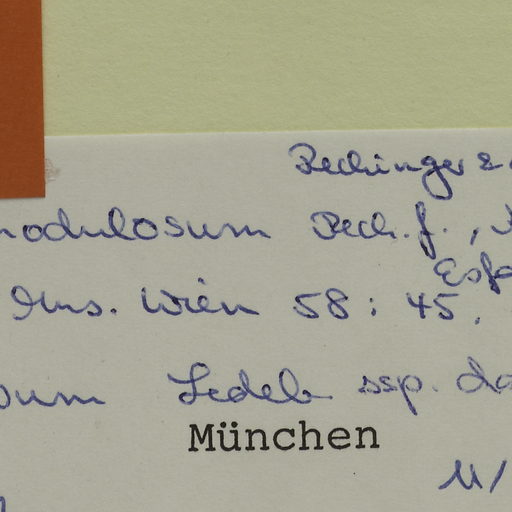 Rechinger &
nodulosum Rech. f.,
Esfa
Mus. Wien 58: 45.
sum Ledeb ssp.
München